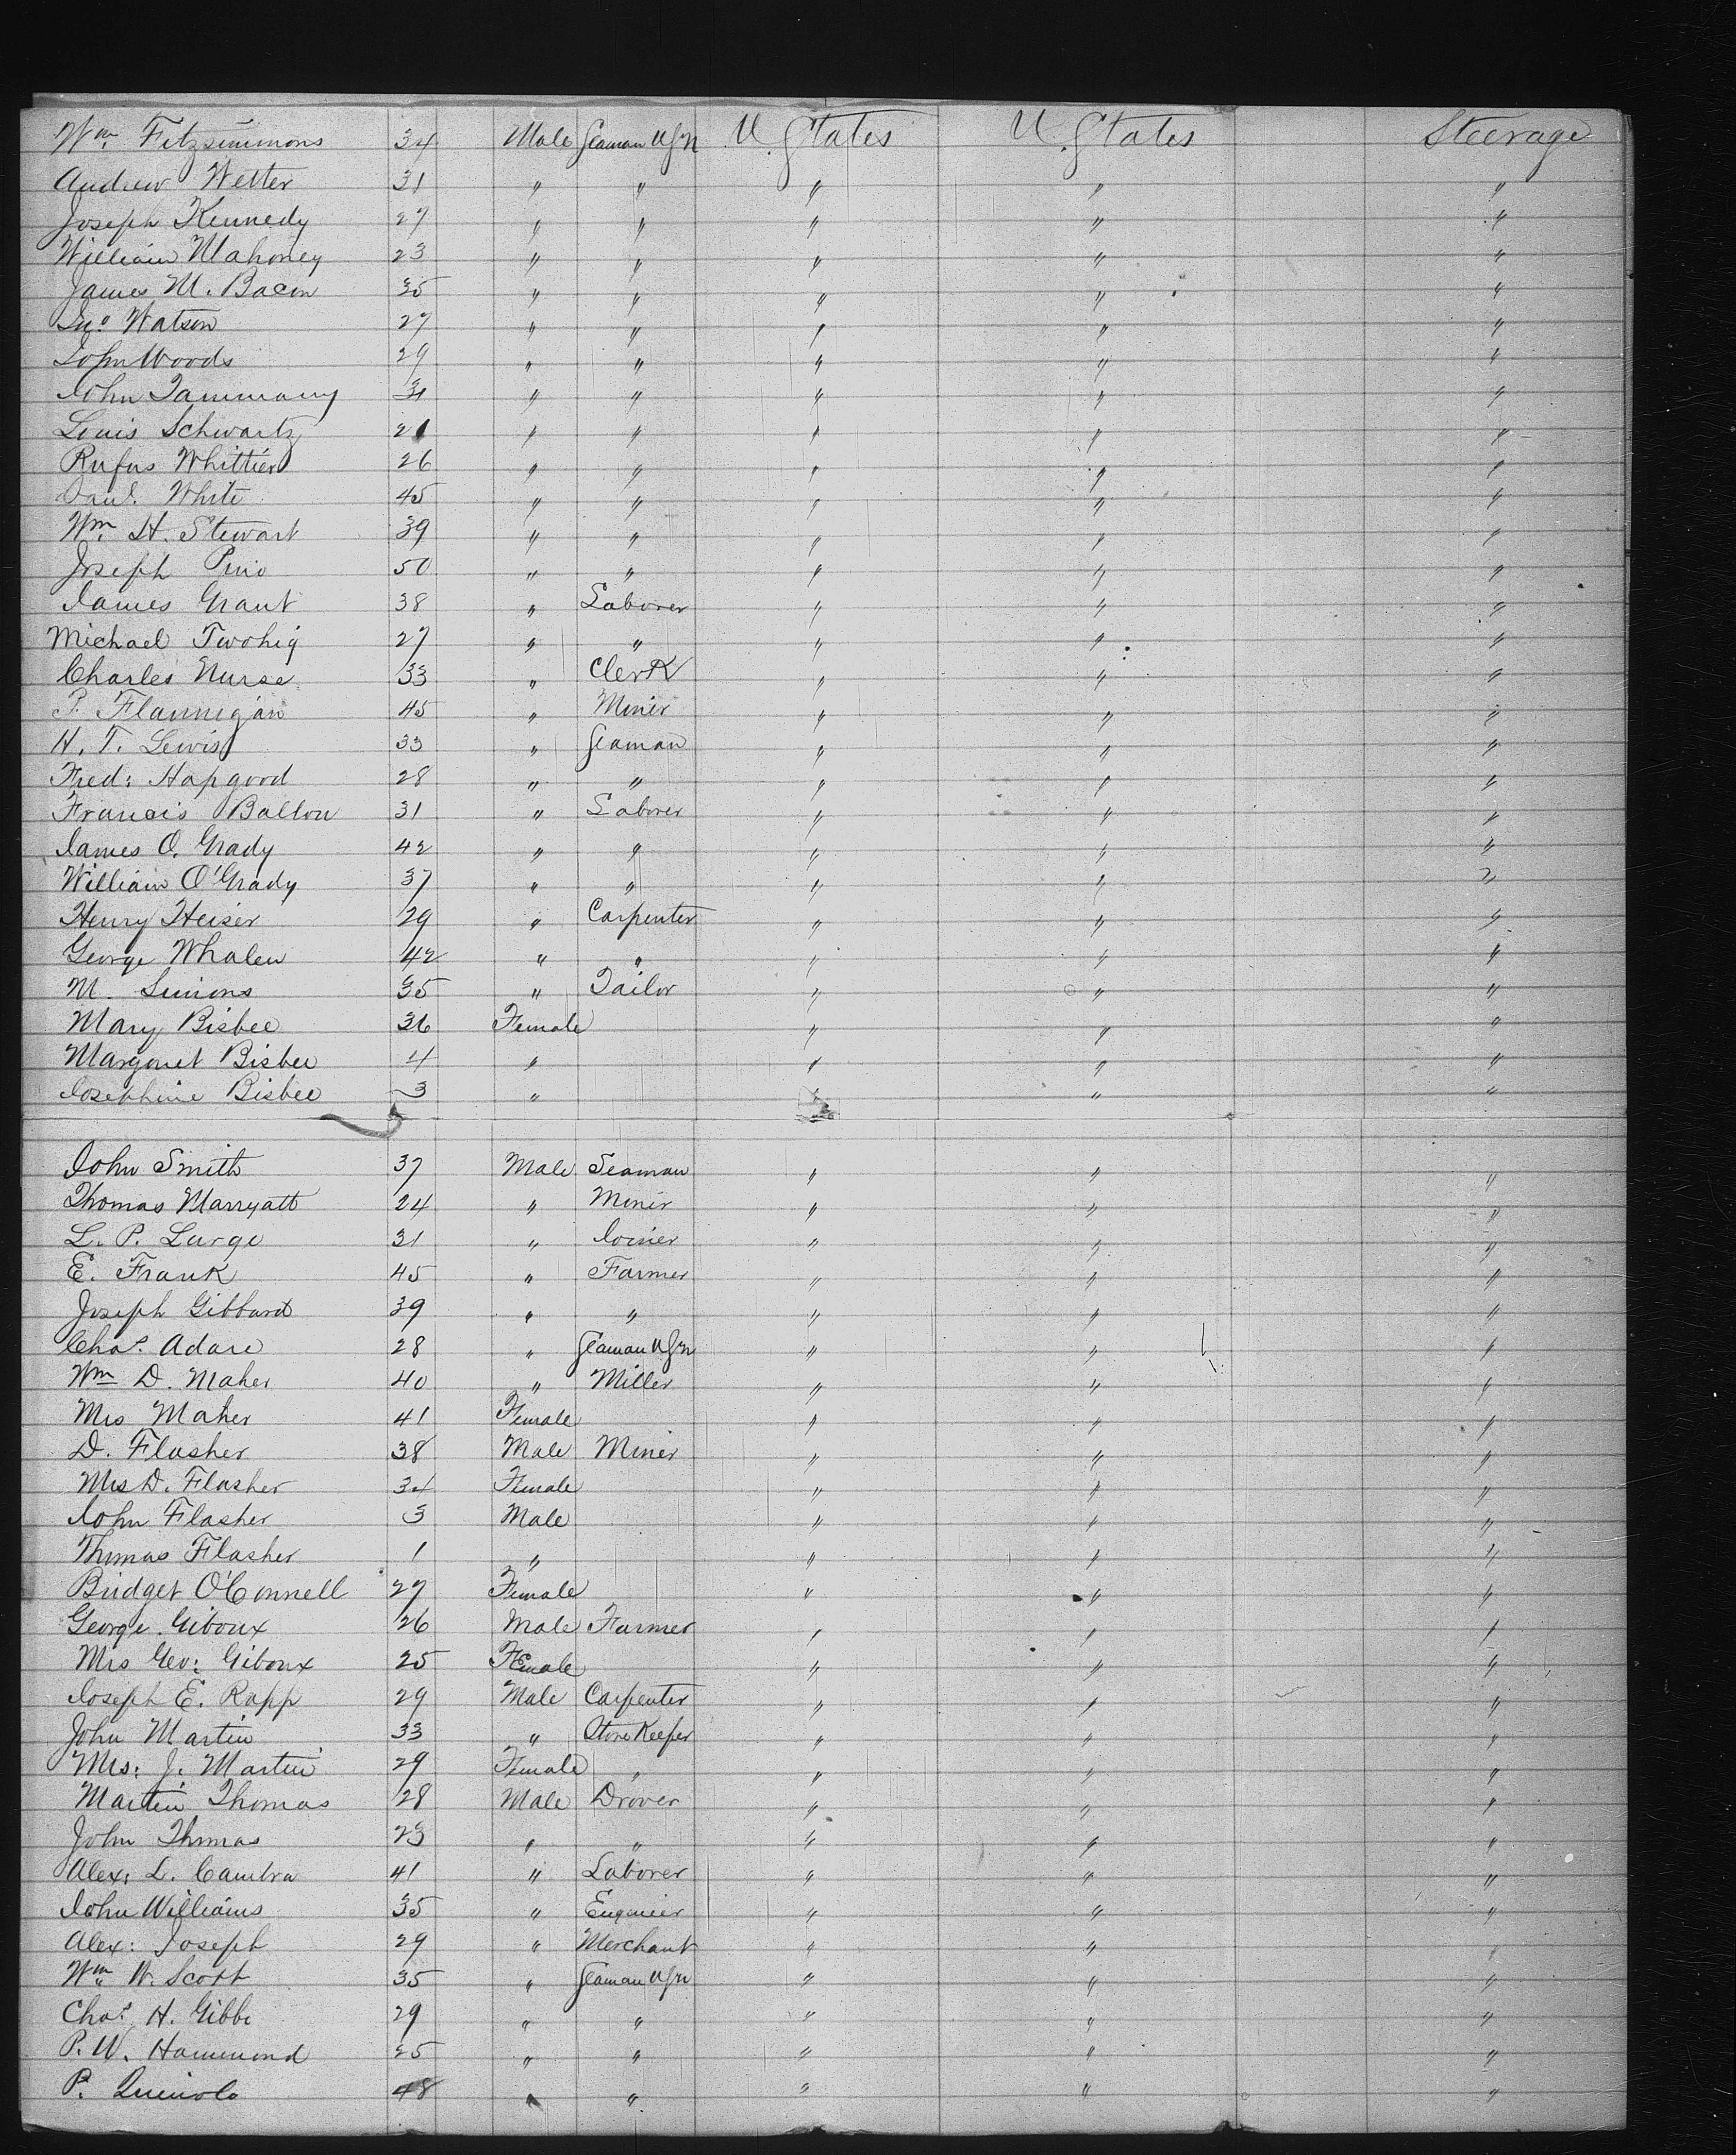 Wm. Fitzsimmons 34 Male Seaman USN U. States U. States Steerage
Andrew Wetter 31 " " " " "
Joseph Kennedy 27 " " " " "
William Mahoney 23 " " " " "
James M. Bacon 35 " " " " "
Jno. Watson 27 " " " " "
John Woods 29 " " " " "
John Tammany 31 " " " " "
Louis Schwartz 21 " " " " "
Rufus Whittier 26 " " " " "
Danl. White 45 " " " " "
Wm. H. Stewart 39 " " " " "
Joseph Pino 50 " " " " "
James Grant 38 " Laborer " " "
Michael Twohig 27 " " " " "
Charles Nurse 33 " Clerk " " "
P. Flannigan 45 " Miner " " "
H. T. Lewis 33 " Seaman " " "
Fred: Hapgood 28 " " " " "
Francis Ballou 31 " Laborer " " "
James O. Grady 42 " " " " "
William O'Grady 37 " " " " "
Henry Heiser 29 " Carpenter " " "
George Whalen 42 " " " " "
M. Simons 35 " Tailor " " "
Mary Bisbee 36 Female " " "
Margaret Bisbee 4 " " " "
Josephine Bisbee 3 " " " "
John Smith 37 Male Seaman " " "
Thomas Marryatt 24 " Miner " " "
L. P. Large 31 " Joiner " " "
E. Frank 45 " Farmer " " "
Joseph Gibbard 39 " " " " "
Chas. Adare 28 " Seaman USN " " "
Wm D. Maher 40 " Miller " " "
Mrs Maher 41 Female " " "
D. Flasher 38 Male Miner " " "
Mrs D. Flasher 34 Female " " "
John Flasher 3 Male " " "
Thomas Flasher 1 " " " "
Bridget O'Connell 27 Female " " "
George Giboux 26 Male Farmer " " "
Mrs Geo: Giboux 25 Female " " "
Joseph E. Rapp 29 Male Carpenter " " "
John Martin 33 " Store Keeper " " "
Mrs: J. Martin 29 Female " " " "
Martin Thomas 28 Male Drover " " "
John Thomas 23 " " " " "
Alex: L. Cambra 41 " Laborer " " "
John Williams 35 " Engineer " " "
Alex: Joseph 29 " Merchant " " "
Wm W. Scott 35 " Seaman USN " " "
Chas. H. Gibbs 29 " " " " "
P. W. Hammond 25 " " " " "
P. 48 " " " " "